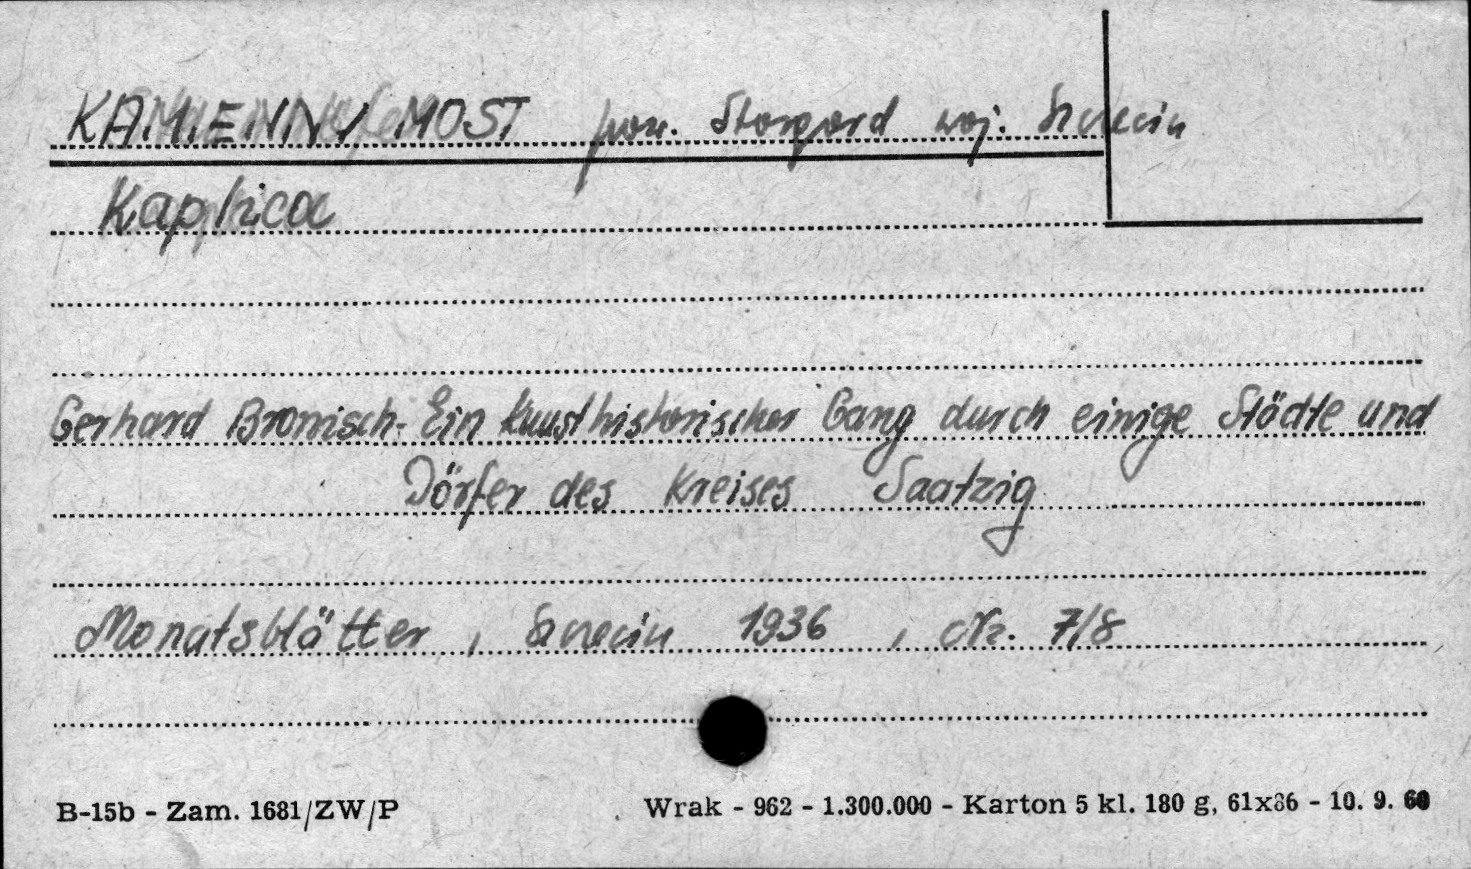 KAMIENNY MOST pow. Stargard woj. Szczecin
Kaplica
Gerhard Bronisch - Ein kunsthistorischer Gang durch einige Städte und
Dörfer des Kreises Saatzig
Monatsblätter, Szczecin 1936, Nr. 7/8
B-15b - Zam. 1681/ZW/P Wrak - 962 - 1.300.000 - Karton 5 kl. 180 g, 61x86 - 10. 9. 60